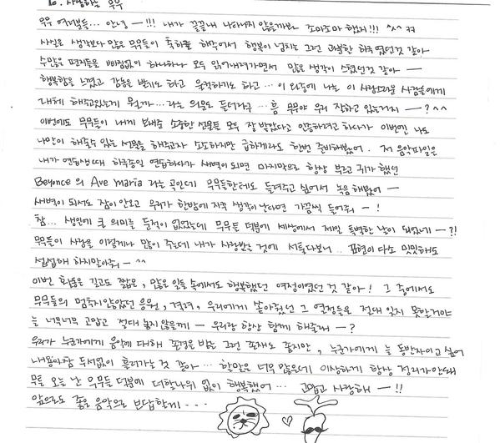 To. 사랑하는 무무
무무 여러분들... 안녕 —!!! 내가 끝끝내 나타나지 않을까봐 조마조마 했지!!! ^^ ㅋㅋ
사실은 생각보다 많은 무무들이 축하를 해줘서 행복이 넘치는 그런 하루였던것 같아~
수많은 편지들을 빠짐없이 하나하나 모두 읽어내려가면서 많은 생각이 스쳤던것 같아 —
행복함을 느꼈고 감동을 받기도 하고 울컥하기도 하고 ... 이 와중에 나는 이 사랑스러운 사람들에게
나에게 해주고있는게 뭔가... 라는 의문도 들더라구 ... 흠 무무야 우리 잘하고 있는거지 —? ^^
이번에도 무무들이 내게 보내준 소중한 선물들 모두 잘 받았다고 인증하려고 하다가 이번엔 나도
나만이 해줄수 있는 선물을 해주고자 소소하지만 급하게라도 한번 준비해봤어. 저 음악파일은
내가 연습생때 하루종일 연습하다가 새벽이 되면 마지막으로 항상 부르고 귀가했던
Beyonce의 Ave Maria 라는 곡인데 무무들한테도 들려주고 싶어서 녹음해봤어 —
새벽이 되서도 잠이 안오고 우리가 한밤에 자꾸 생각이 난다면 가끔씩 들어줘 —!
참... 생일에 큰 의미를 둔적이 없었는데 무무들 덕분에 세상에서 제일 특별한 날이 돼있네 —?!
무무들이 사랑을 이렇게나 많이 주는데 내가 사랑받는 것에 서툴다보니.. 표현이 다소 밋밋해도
섭섭해 하지말아줘 — ^^
이번 활동은 길고도 짧았고, 많은 일들 속에서도 행복했던 여정이었던 것 같아! 그 중에서도
무무들의 멈추지않았던 응원, 격려, 우리에게 쏟아줬던 그 열정들은 절대 잊지 못할거야
늘 너무너무 고맙고 절대 놓지않을께 — 우리랑 항상 함께 해줄꺼지 —?
우리가 누군가에게 음악에 대해 존경을 받는 그런 존재도 좋지만, 누군가에게 늘 동반자이고 싶어
내 일기장 두서없이 흘러가는 것 같아 ... 할말은 너무 많은데 이상하게 항상 정리가안돼
무튼 오늘 난 무무들 덕분에 더할나위 없이 행복했어 ... 고맙고 사랑해 —!!
앞으로도 좋은 음악으로 보답할게 ...